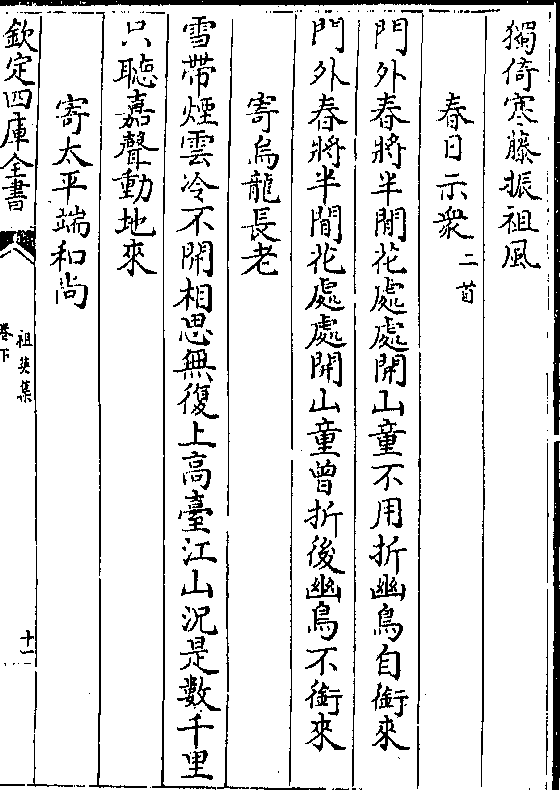 獨倚寒藤振祖風
春日示衆二首
門外春將半閒花處處開山童不用折幽鳥自銜來
門外春將半閒花處處開山童曾折後幽鳥不銜來
寄烏龍長老
雪帶煙雲冷不開相思無復上高臺江山況是數千里
只聽嘉聲動地來
寄太平端和尚
欽定四庫全書
祖英集
卷下
十一